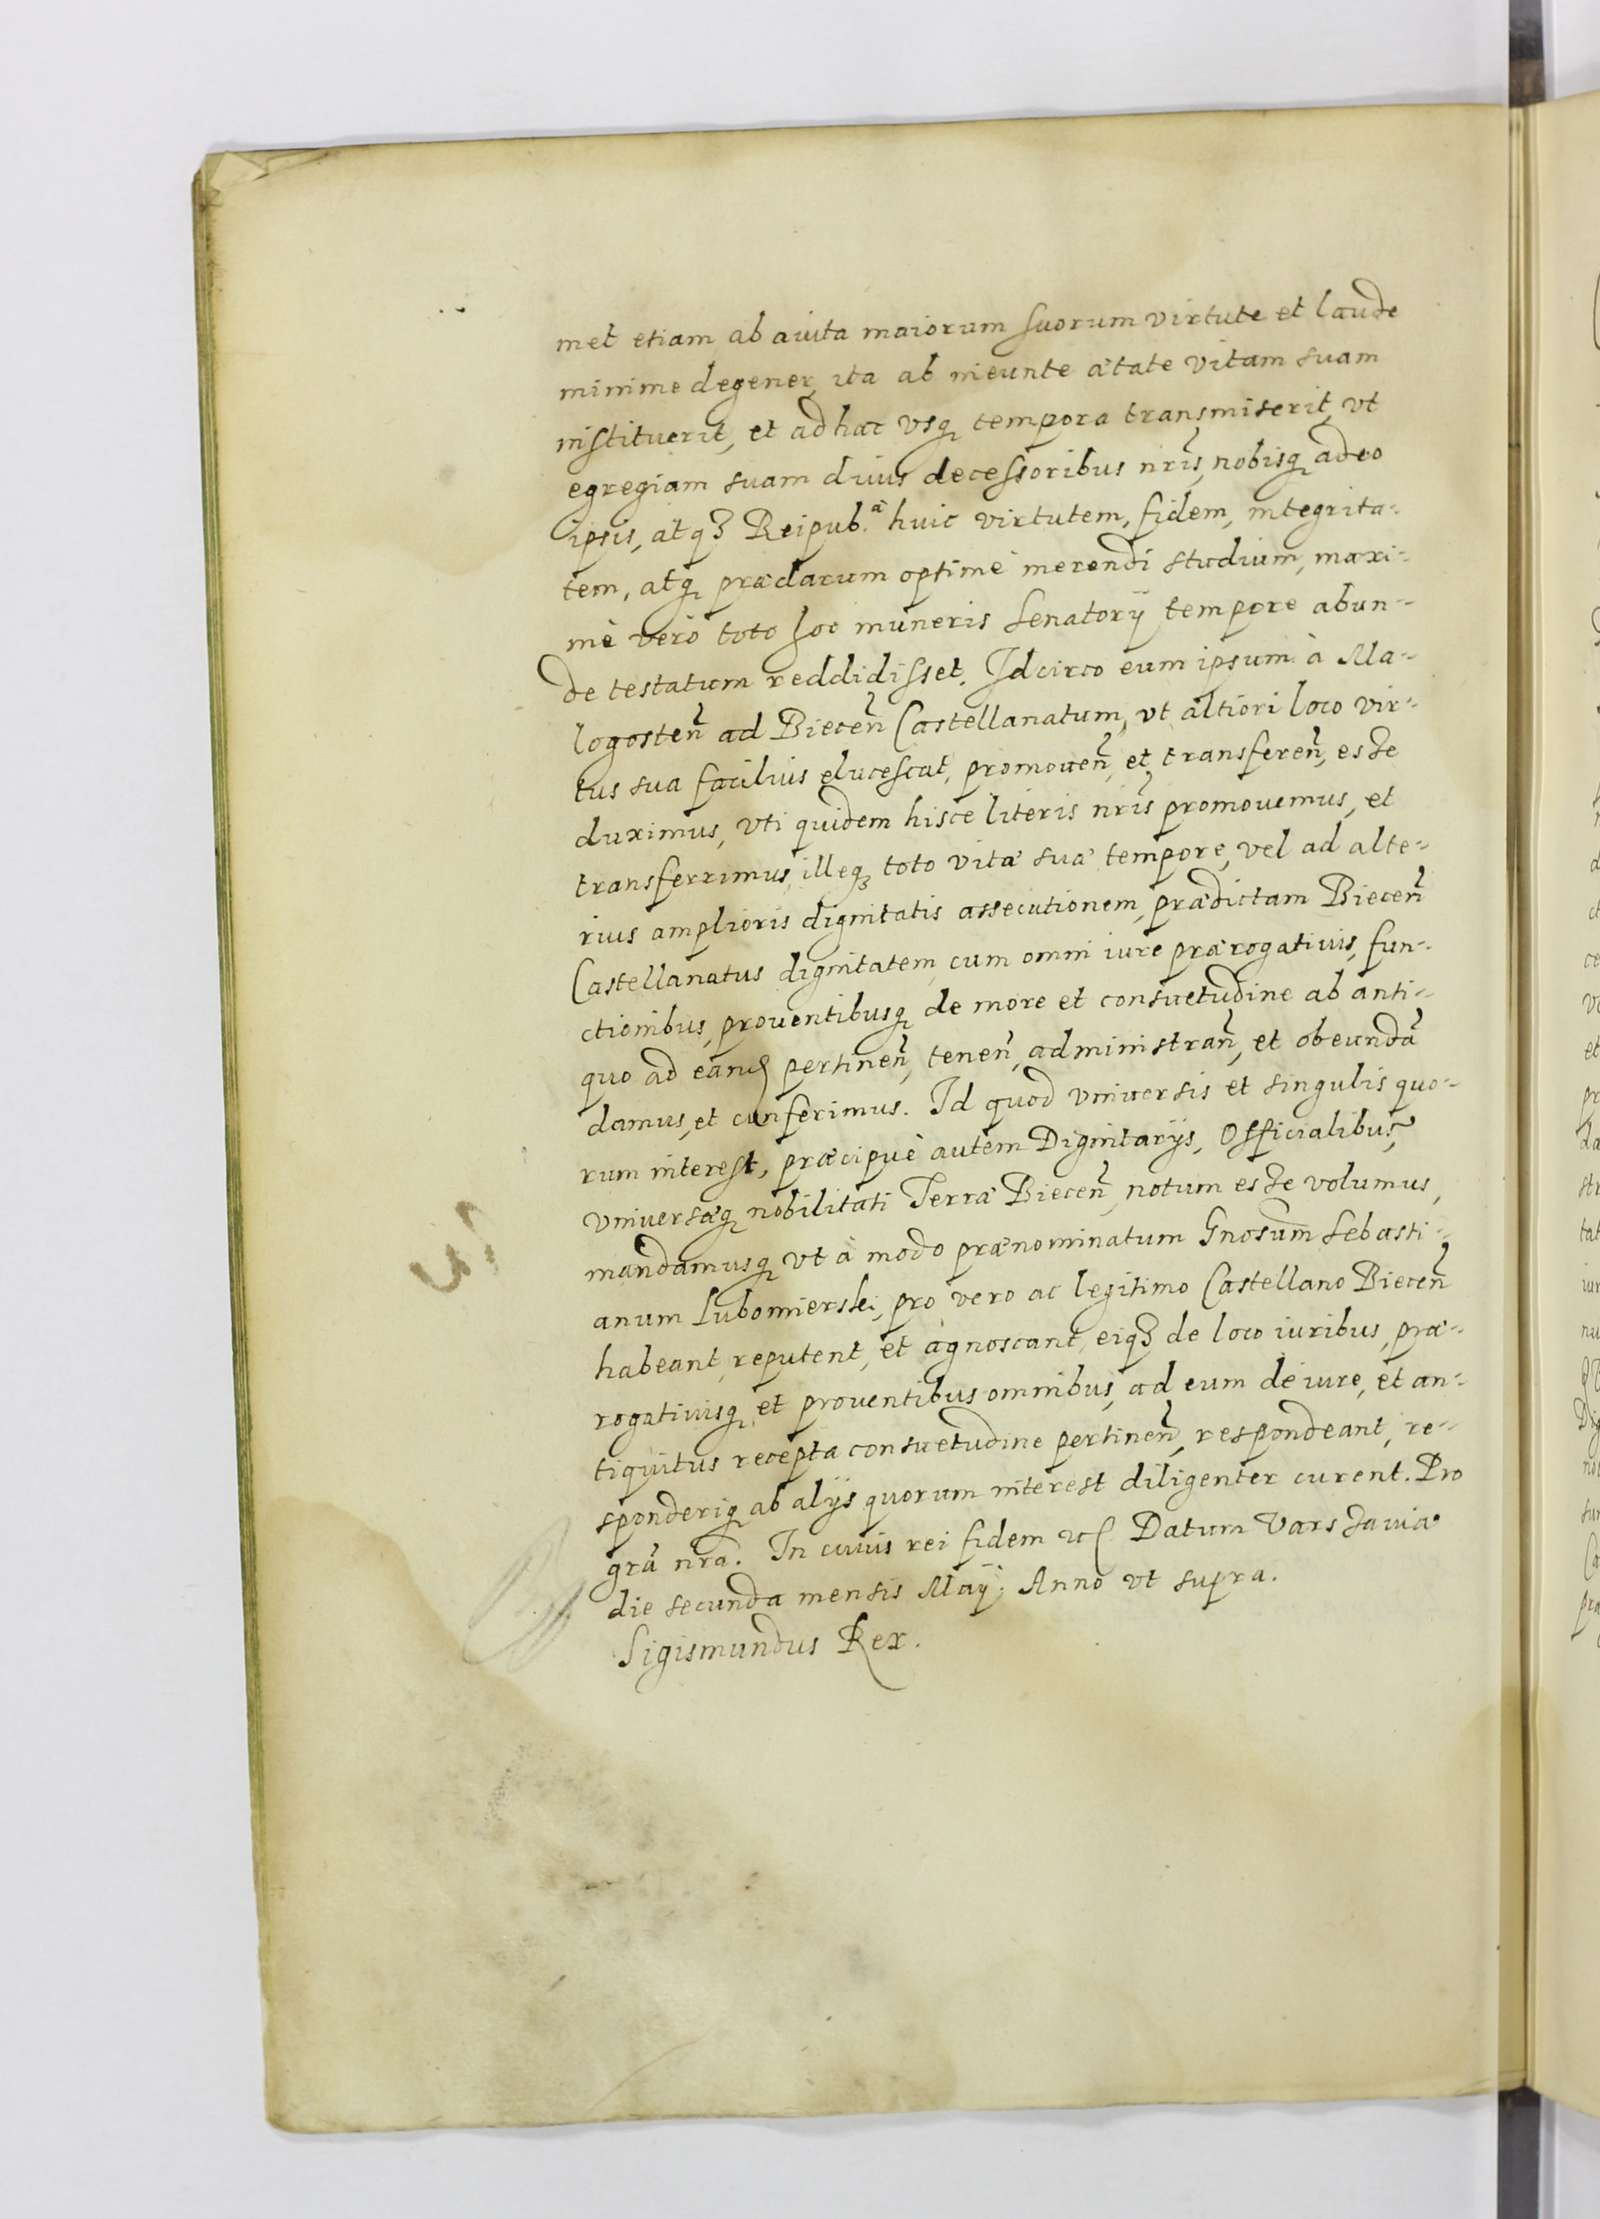 met etiam ab auita maiorum suorum virtute et laude
minime degener, ita ab ineunte ætate vitam suam
instituerit, et ad hæc vsq tempora transmiserit, vt
egregiam suam diuis decessoribus nr̃is, nobisq adeo
ipsis, atqȝ Reipub.ᵃ huic virtutem, fidem, integrita-
tem, atq præclarum optimè merendi studium, maxi-
mè verò toto hoc muneris Senatorÿ tempore abun-
de testatum reddidisset. Idcirco eum ipsum à Ma-
logosten̄ ad Biecen̄ Castellanatum, vt altiori loco vir-
tus sua facilius elucescat, promouen̄, et transferen̄, esse
duximus, vti quidem hisce literis nr̃is promouemus, et
transferrimus, illeq toto vitæ suæ tempore, vel ad alte-
rius amplioris dignitatis assecutionem, prædictam Biecen̄
Castellanatus dignitatem, cum omni iure prærogatiuis, fun-
ctionibus, prouentibusq de more et consuetudine ab anti-
quo ad eand pertinen̄, tenen̄, administran̄, et obeundā
damus, et conferimus. Id quod vniuersis et singulis quo-
rum interest, præcipuè autem Dignitarÿs, Officialibus,
vniuersæq nobilitati Terræ Biecen̄, notum esse volumus,
mandamusq vt à modo prænominatum Gnosum Sebasti-
anum Lubomierski, pro vero ac legitimo Castellano Biecen̄
habeant, reputent, et agnoscant, eiqȝ de loco iuribus, præ-
rogatiuisq et prouentibus omnibus, ad eum de iure, et an-
tiquitus recepta consuetudine pertinen̄, respondeant, re-
sponderiq ab alÿs quorum interest diligenter curent. Pro
grā nrā. In cuius rei fidem etc. Datum Varssauiæ
die secunda mensis Maÿ. Anno vt supra.
Sigismundus Rex.